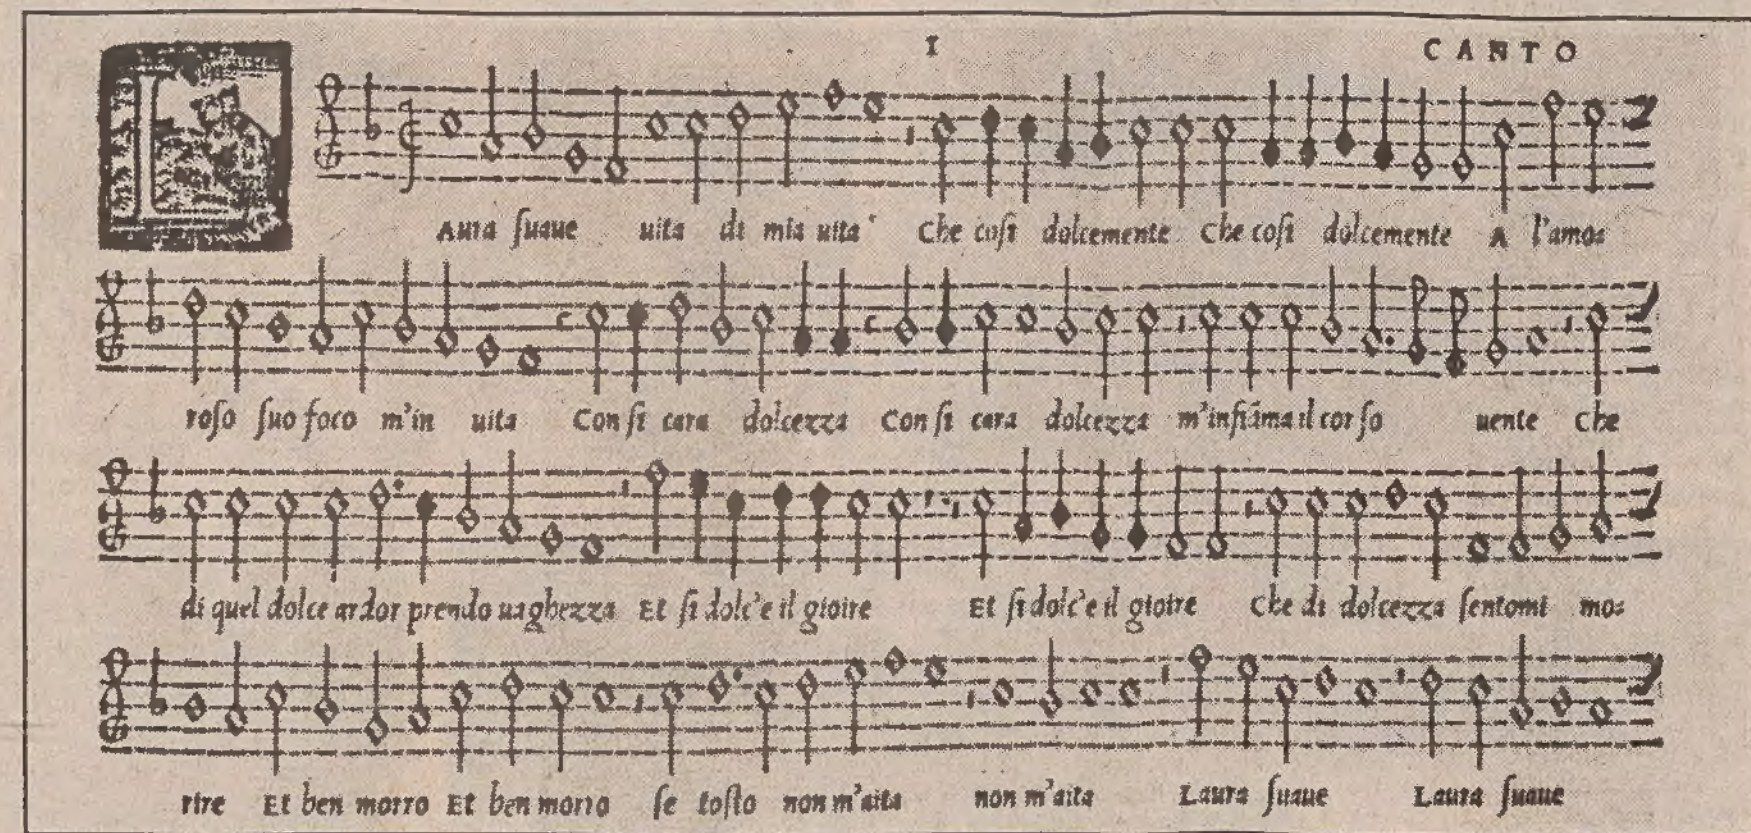 I CANTO
L
Aura ſuaue uita di mia uita Che coſi dolcemente Che coſi dolcemente A l'amo=
roſo ſuo foco m'in uita Con ſi cara dolcezza Con ſi cara dolcezza m'infiāma il cor ſo uente Che
di quel dolce ardor prendo uaghezza Et ſi dolc'e il gioire Et ſi dolc'e il gioire Che di dolcezza ſentomi mo=
rire Et ben morro Et ben morro ſe toſto non m'aita non m'aita Laura ſuaue Laura ſuaue